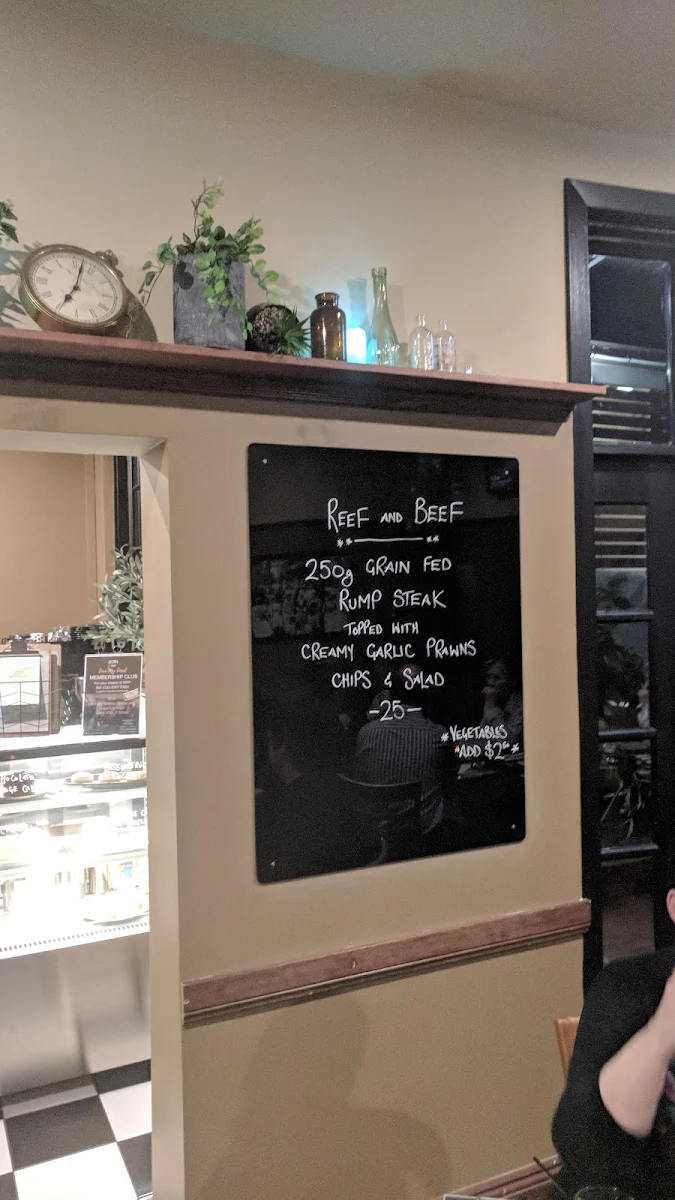 REEF AND BEEF
250g GRAIN FED
RUMP STEAK
TOPPED WITH
CREAMY GARLIC PRAWNS
CHIPS & SALAD
-25-
*VEGETABLES
*ADD $2⁵⁰*
MEMBERSHIP CLUB